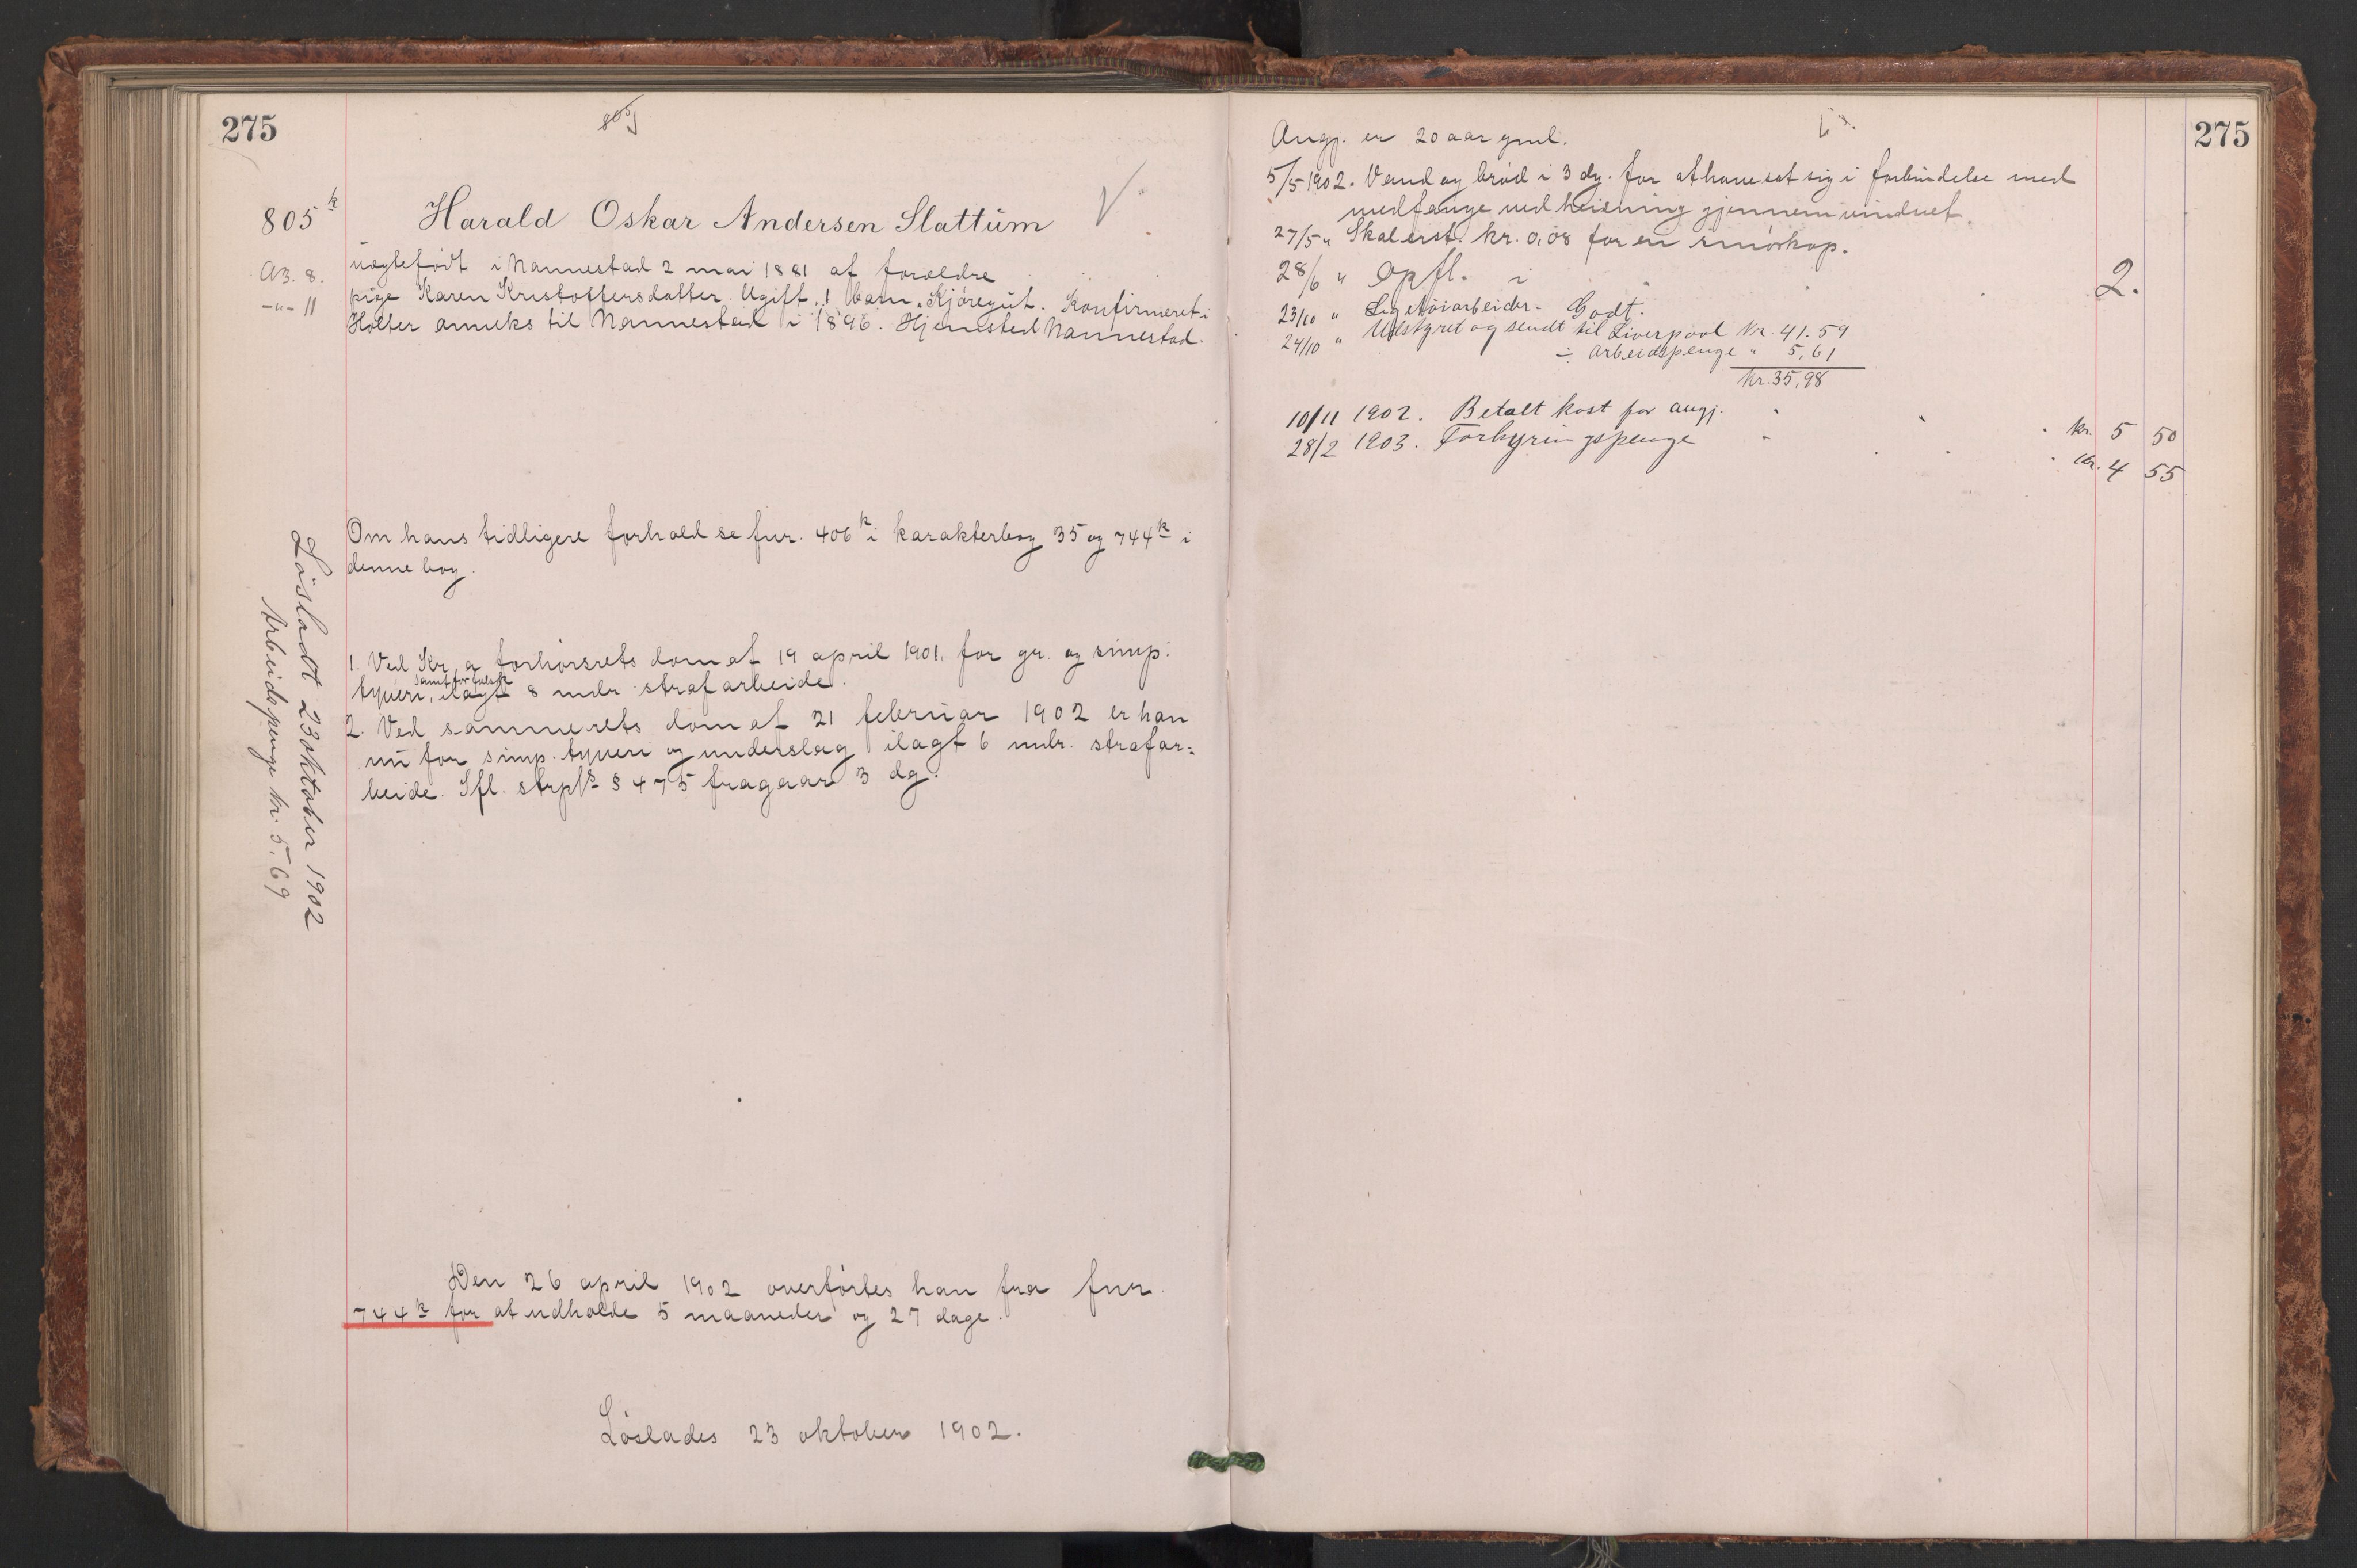 275
805
805k
Harald Oskar Andersen Slattum
A3. 8.
uægtefødt i Nannestad 2 mai 1881 af forældre
-"- 11
pige Karen Kristoffersdatter. Ugift, 1 barn. Kjøregut. Konfirmeret i
Holter anneks til Nannestad i 1896. Hjemsted Nannestad.
Om hans tidligere forhold se fnr. 406k i karakterbog 35 og 744k i
denne bog.
1. Ved Kr.a forhørsrets dom af 19 april 1901, for gr. og simp.
samt for falsk
tyveri, ilagt 8 mdr strafarbeide.
2. Ved samme rets dom af 21 februar 1902 er han
nu for simp. tyveri og underslag ilagt 6 mdr. strafar=
beide. Ifl. strpl's § 475 fragaar 3 dg.
Løsladt 23 oktober 1902
Arbeidspenge kr. 5,69
Den 26 april 1902 overførtes han fra fnr.
744k for at udholde 5 maaneder og 27 dage.
Løslades 23 oktober 1902.
275
Angj. er 20 aar gml.
5/5 1902. Vand og brød i 3 dg. for at have sat sig i forbindelse med
medfange ved heisning gjennem vinduet.
27/5 " Skal erst. kr. 0,08 for en smørkop.
28/6 " Opfl. i 2.
23/10 " Legetøiarbeider. Godt.
24/10 " Udstyret og sendt til Liverpool Kr. 41.59
÷ arbeidspenge " 5,61
Kr. 35,98
10/11 1902. Betalt kost for angj. kr. 5 50
28/2 1903. Forhyringspenge kr. 4 55